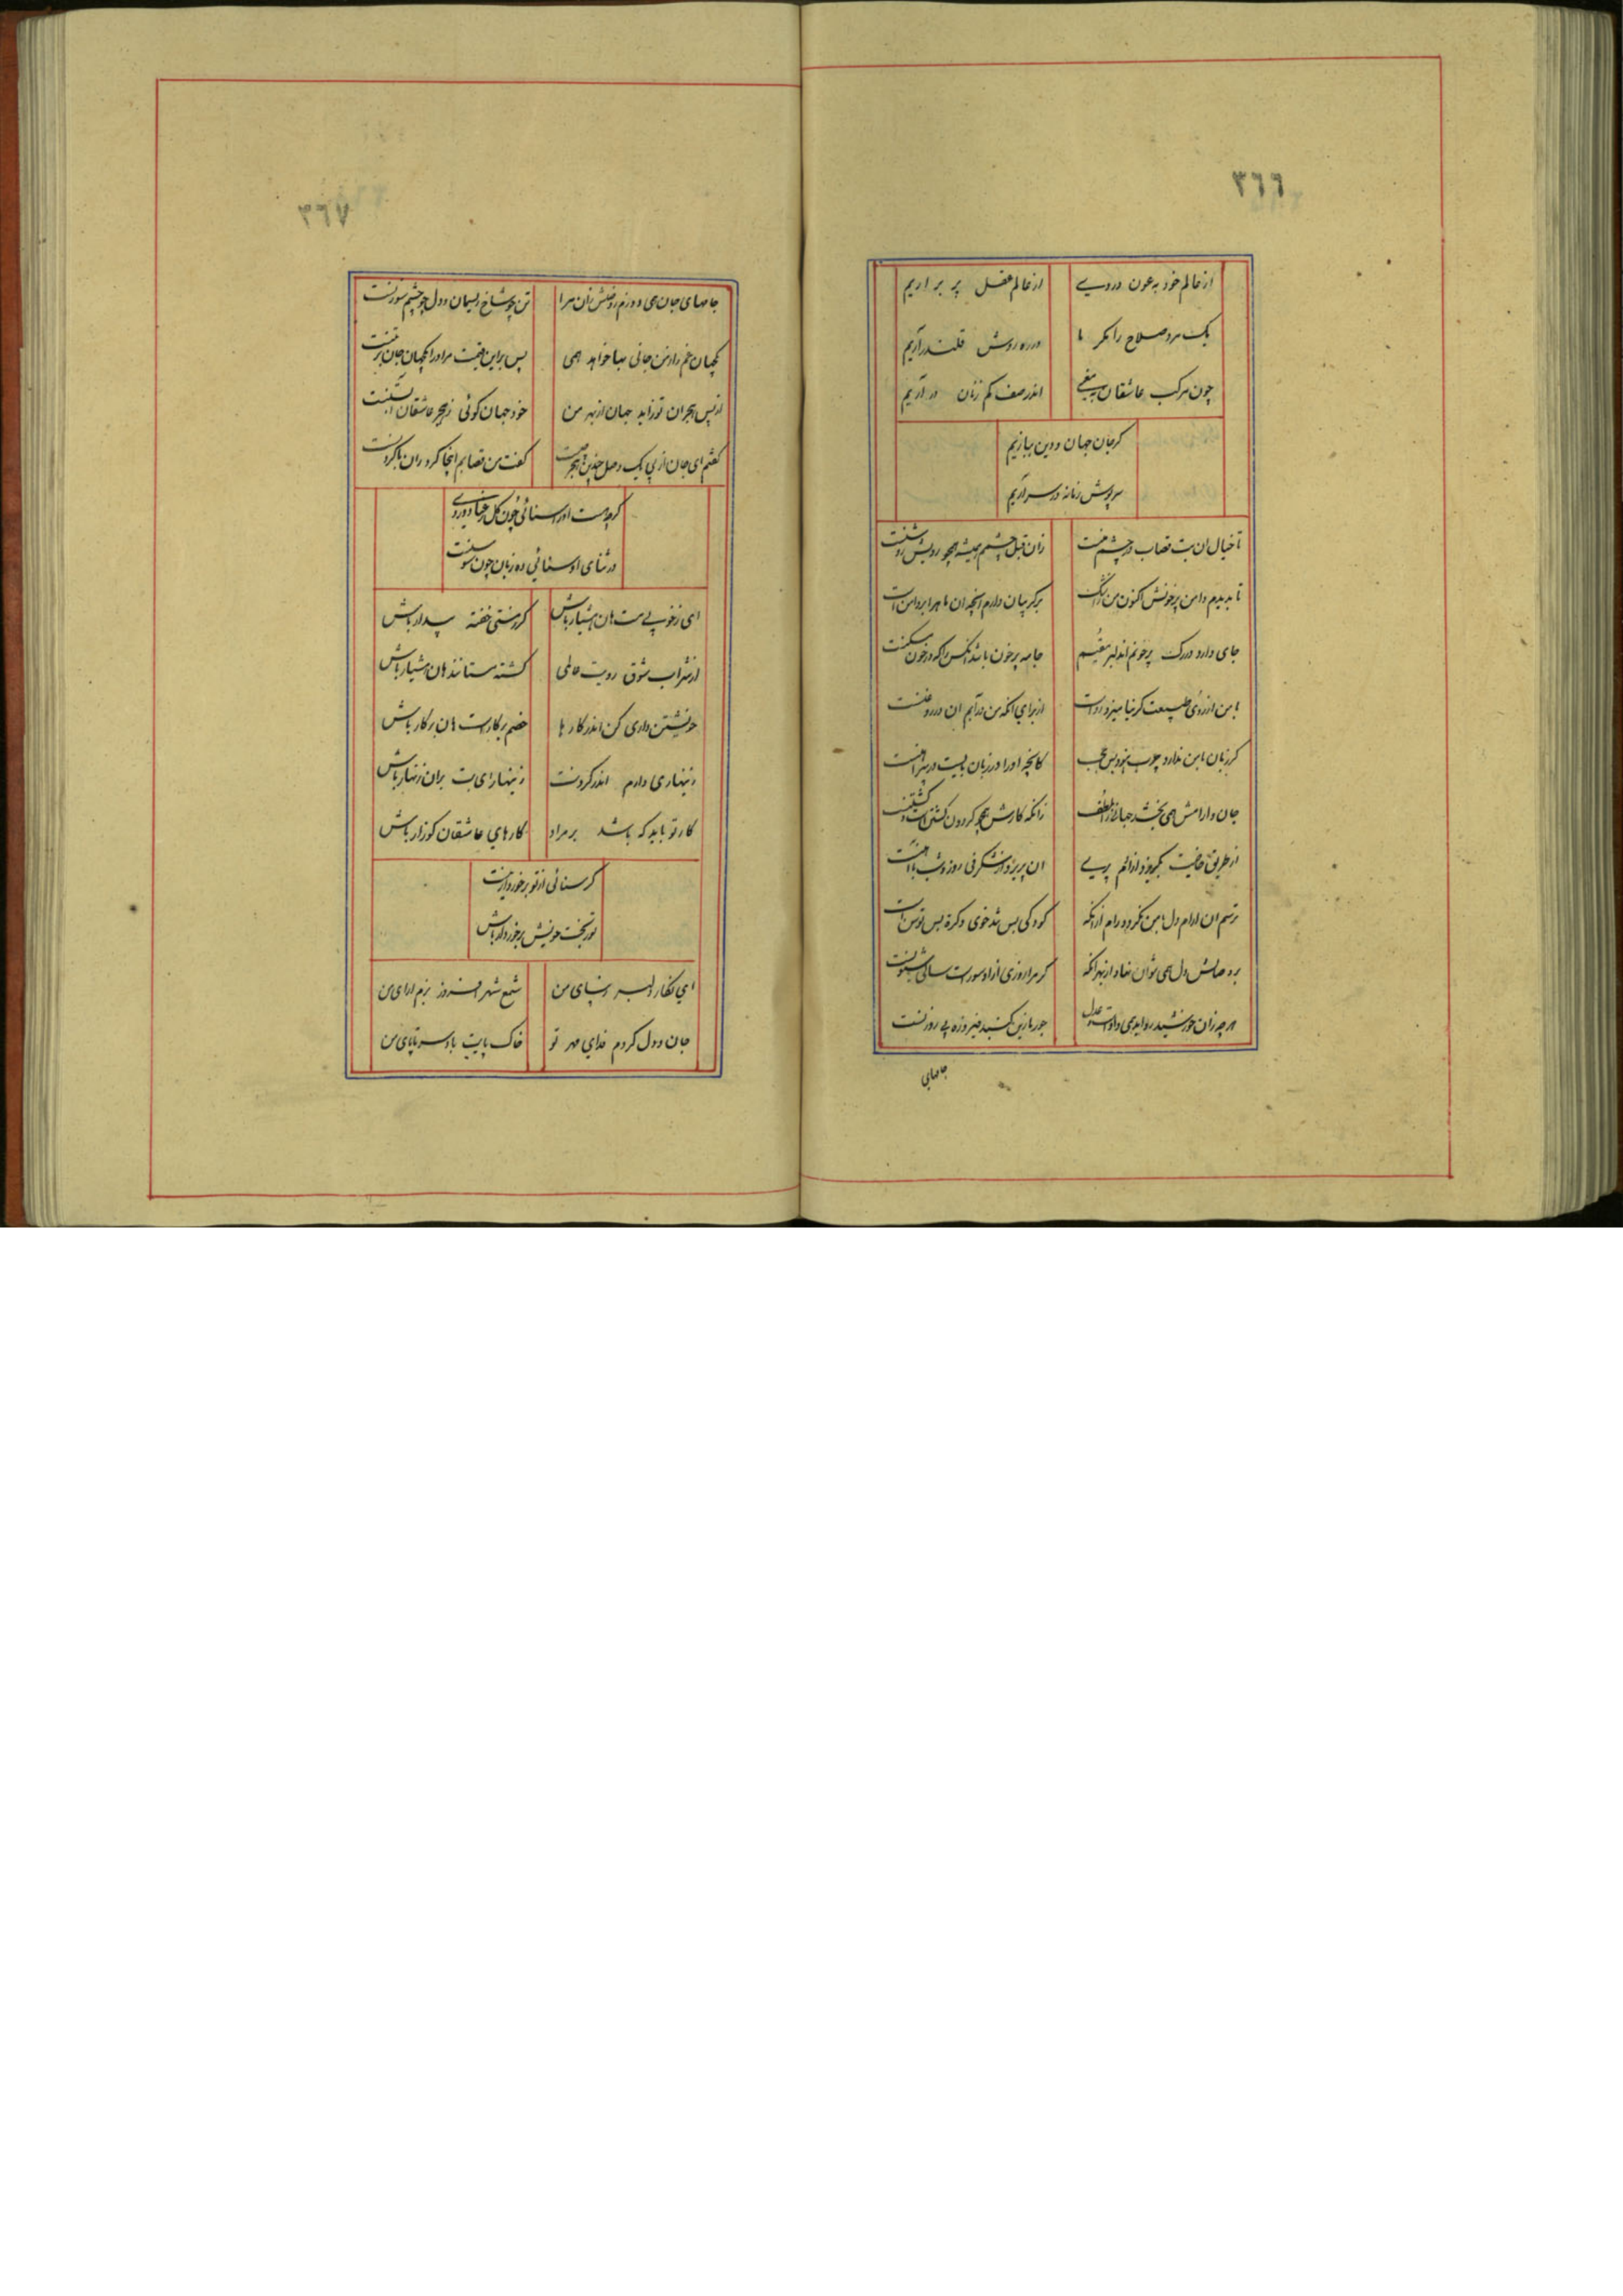 ٣٦٦
از عالم خود به عون دردی از عالم عقل پر بر اریم
یک مرد صلاح را مکر ما در ره روش قلندر آریم
چون مرکب عاشقان اندر صف کم زنان در آریم
کر جان جهان و دین ببازیم
سرپوش زمانه در سر آریم
تا خیال ان بت قصاب در چشم منست زان قبل چشمم همیشه همچو رویش روشنست
تا بدیدم دامن پر خونش اکنون من ز اشک بر کریبان دارم انچه ان ماه را بر دامن است
جای دارد در رک پر خونم اندلبر مقیم جامه پر خون باشد انکس را که در خون مسکنست
با من از روی طبیعت کر نیامیزد رواست از برای انکه من در آبم ان در روغنست
کر زبان با من ندارد چرب نبود بس عجب کانچه او را در زبان بایست در پیراهنست
جان دارامش همی بخشد جهانرا لطف زانکه کارش همچو کردون کشتن است و کشتنست
از طریق خاصیت بکریزد از اهن پری ان پریرو از شکرفی روز و شب با اهنست
ترسم ان ارام دل با من نکردد رام ازانکه کودکی بس تند خوی و کره بس توسن است
بر وصالش دل همی نتوان نهاد از بهر انکه کر مرا روزی ازو سورست سالی شیونست
هر چه زان خورشید رو ایدهمی دادست و عدل جور ما زین کنبد فیروزه بی روزنست
جامهای
٣٦٧
جامهای جان همی دوزم ز وصلش زان مرا تن چو شاخ ریسمان و دل چو چشم سوزنست
کیهان غم را ز من جانی بها خواهد همی پس بر این قیمت مر او را کیهان جان بر منست
از پس هجران تو زاید جهان از بهر من خود جهان کوئی ز هجر عاشقان ابستنست
کفتم ای جان از پی یک وصل چندین هجر چیست کفت من قصابم اینجا کرد ران با کردنست
کرچه هست او را سنائی چون کل رعنا دو روی
در ثنای او سنائی ده زبان چون سوسنست
ای ز خوبی مست هان هشیار باش کر ز مستی خفته بیدار باش
از شراب شوق رویت عالمی کشته مستانند هان هشیار باش
خویشتن داری کن اندر کار ها خصم بر کارست هان بر کار باش
زینهاری دارم اندر کردنت زینهار ای بت بران زنهار باش
کار تو باید که باشد بر مراد کارهای عاشقان کو زار باش
کر سنائی از تو برخوردار نیست
تو ز بخت خویش برخوردار باش
ای نکار دلبر زیبای من شمع شهر افروز بزم ارای من
جان و دل کردم فدای مهر تو خاک پایت باد سر تا پای من